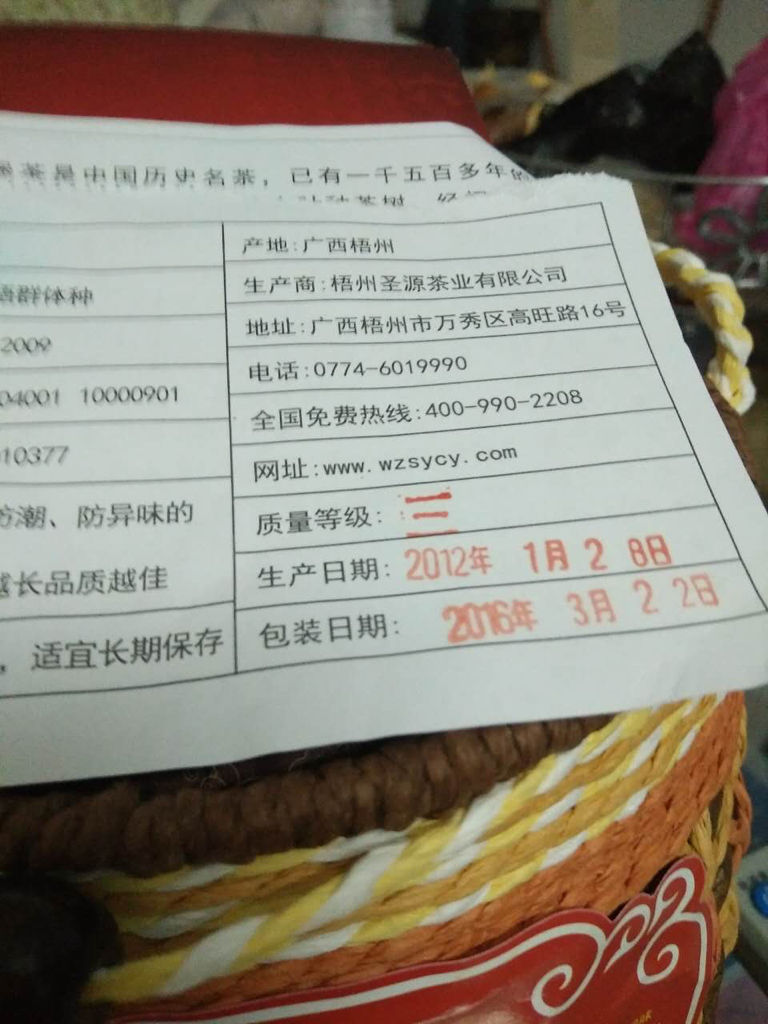 茶是中国历史名茶，已有一千五百多年的
产地:广西梧州
群体种
生产商:梧州圣源茶业有限公司
2009
地址:广西梧州市万秀区高旺路16号
04001 10000901
电话:0774-6019990
全国免费热线:400-990-2208
10377
网址:www.wzsycy.com
防潮、防异味的
质量等级:三
越长品质越佳
生产日期:2012年 1月 2 8日
，适宜长期保存
包装日期:2016年 3月 2 2日